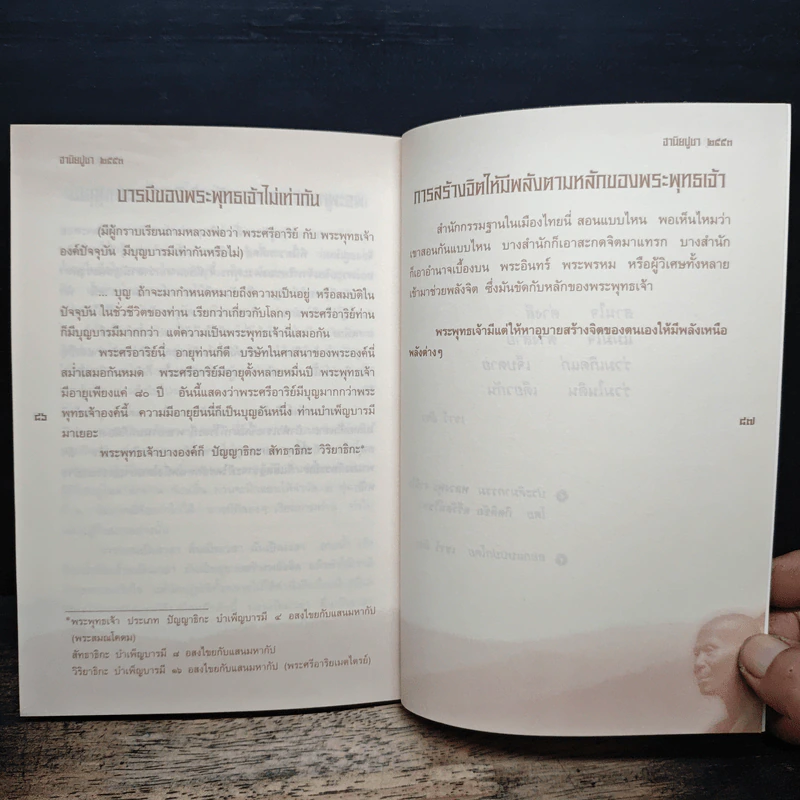 ฐานิยปูชา ๒๕๕๓
บารมีของพระพุทธเจ้าไม่เท่ากัน
(มีผู้กราบเรียนถามหลวงพ่อว่า พระศรีอาริย์ กับ พระพุทธเจ้า
องค์ปัจจุบัน มีบุญบารมีเท่ากันหรือไม่)
... บุญ ถ้าจะมากำหนดหมายถึงความเป็นอยู่ หรือสมบัติใน
ปัจจุบัน ในชั่วชีวิตของท่าน เรียกว่าเกี่ยวกับโลกๆ พระศรีอาริย์ท่าน
ก็มีบุญบารมีมากกว่า แต่ความเป็นพระพุทธเจ้านี่เสมอกัน
พระศรีอาริย์นี่ อายุท่านก็ดี บริษัทในศาสนาของพระองค์นี่
สม่ำเสมอกันหมด พระศรีอาริย์มีอายุตั้งหลายหมื่นปี พระพุทธเจ้า
มีอายุเพียงแค่ ๘๐ ปี อันนี้แสดงว่าพระศรีอาริย์มีบุญมากกว่าพระ
พุทธเจ้าองค์นี้ ความมีอายุยืนนี่ก็เป็นบุญอันหนึ่ง ท่านบำเพ็ญบารมี
มาเยอะ
พระพุทธเจ้าบางองค์ก็ ปัญญาธิกะ สัทธาธิกะ วิริยาธิกะ*
๘๖
*พระพุทธเจ้า ประเภท ปัญญาธิกะ บำเพ็ญบารมี ๔ อสงไขยกับแสนมหากัป
(พระสมณโคดม)
สัทธาธิกะ บำเพ็ญบารมี ๘ อสงไขยกับแสนมหากัป
วิริยาธิกะ บำเพ็ญบารมี ๑๖ อสงไขยกับแสนมหากัป (พระศรีอาริยเมตไตรย์)
ฐานิยปูชา ๒๕๕๓
การสร้างจิตให้มีพลังตามหลักของพระพุทธเจ้า
สำนักกรรมฐานในเมืองไทยนี่ สอนแบบไหน พอเห็นไหมว่า
เขาสอนกันแบบไหน บางสำนักก็เอาสะกดจิตมาแทรก บางสำนัก
ก็เอาอำนาจเบื้องบน พระอินทร์ พระพรหม หรือผู้วิเศษทั้งหลาย
เข้ามาช่วยพลังจิต ซึ่งมันขัดกับหลักของพระพุทธเจ้า
พระพุทธเจ้ามีแต่ให้หาอุบายสร้างจิตของตนเองให้มีพลังเหนือ
พลังต่างๆ
๘๗